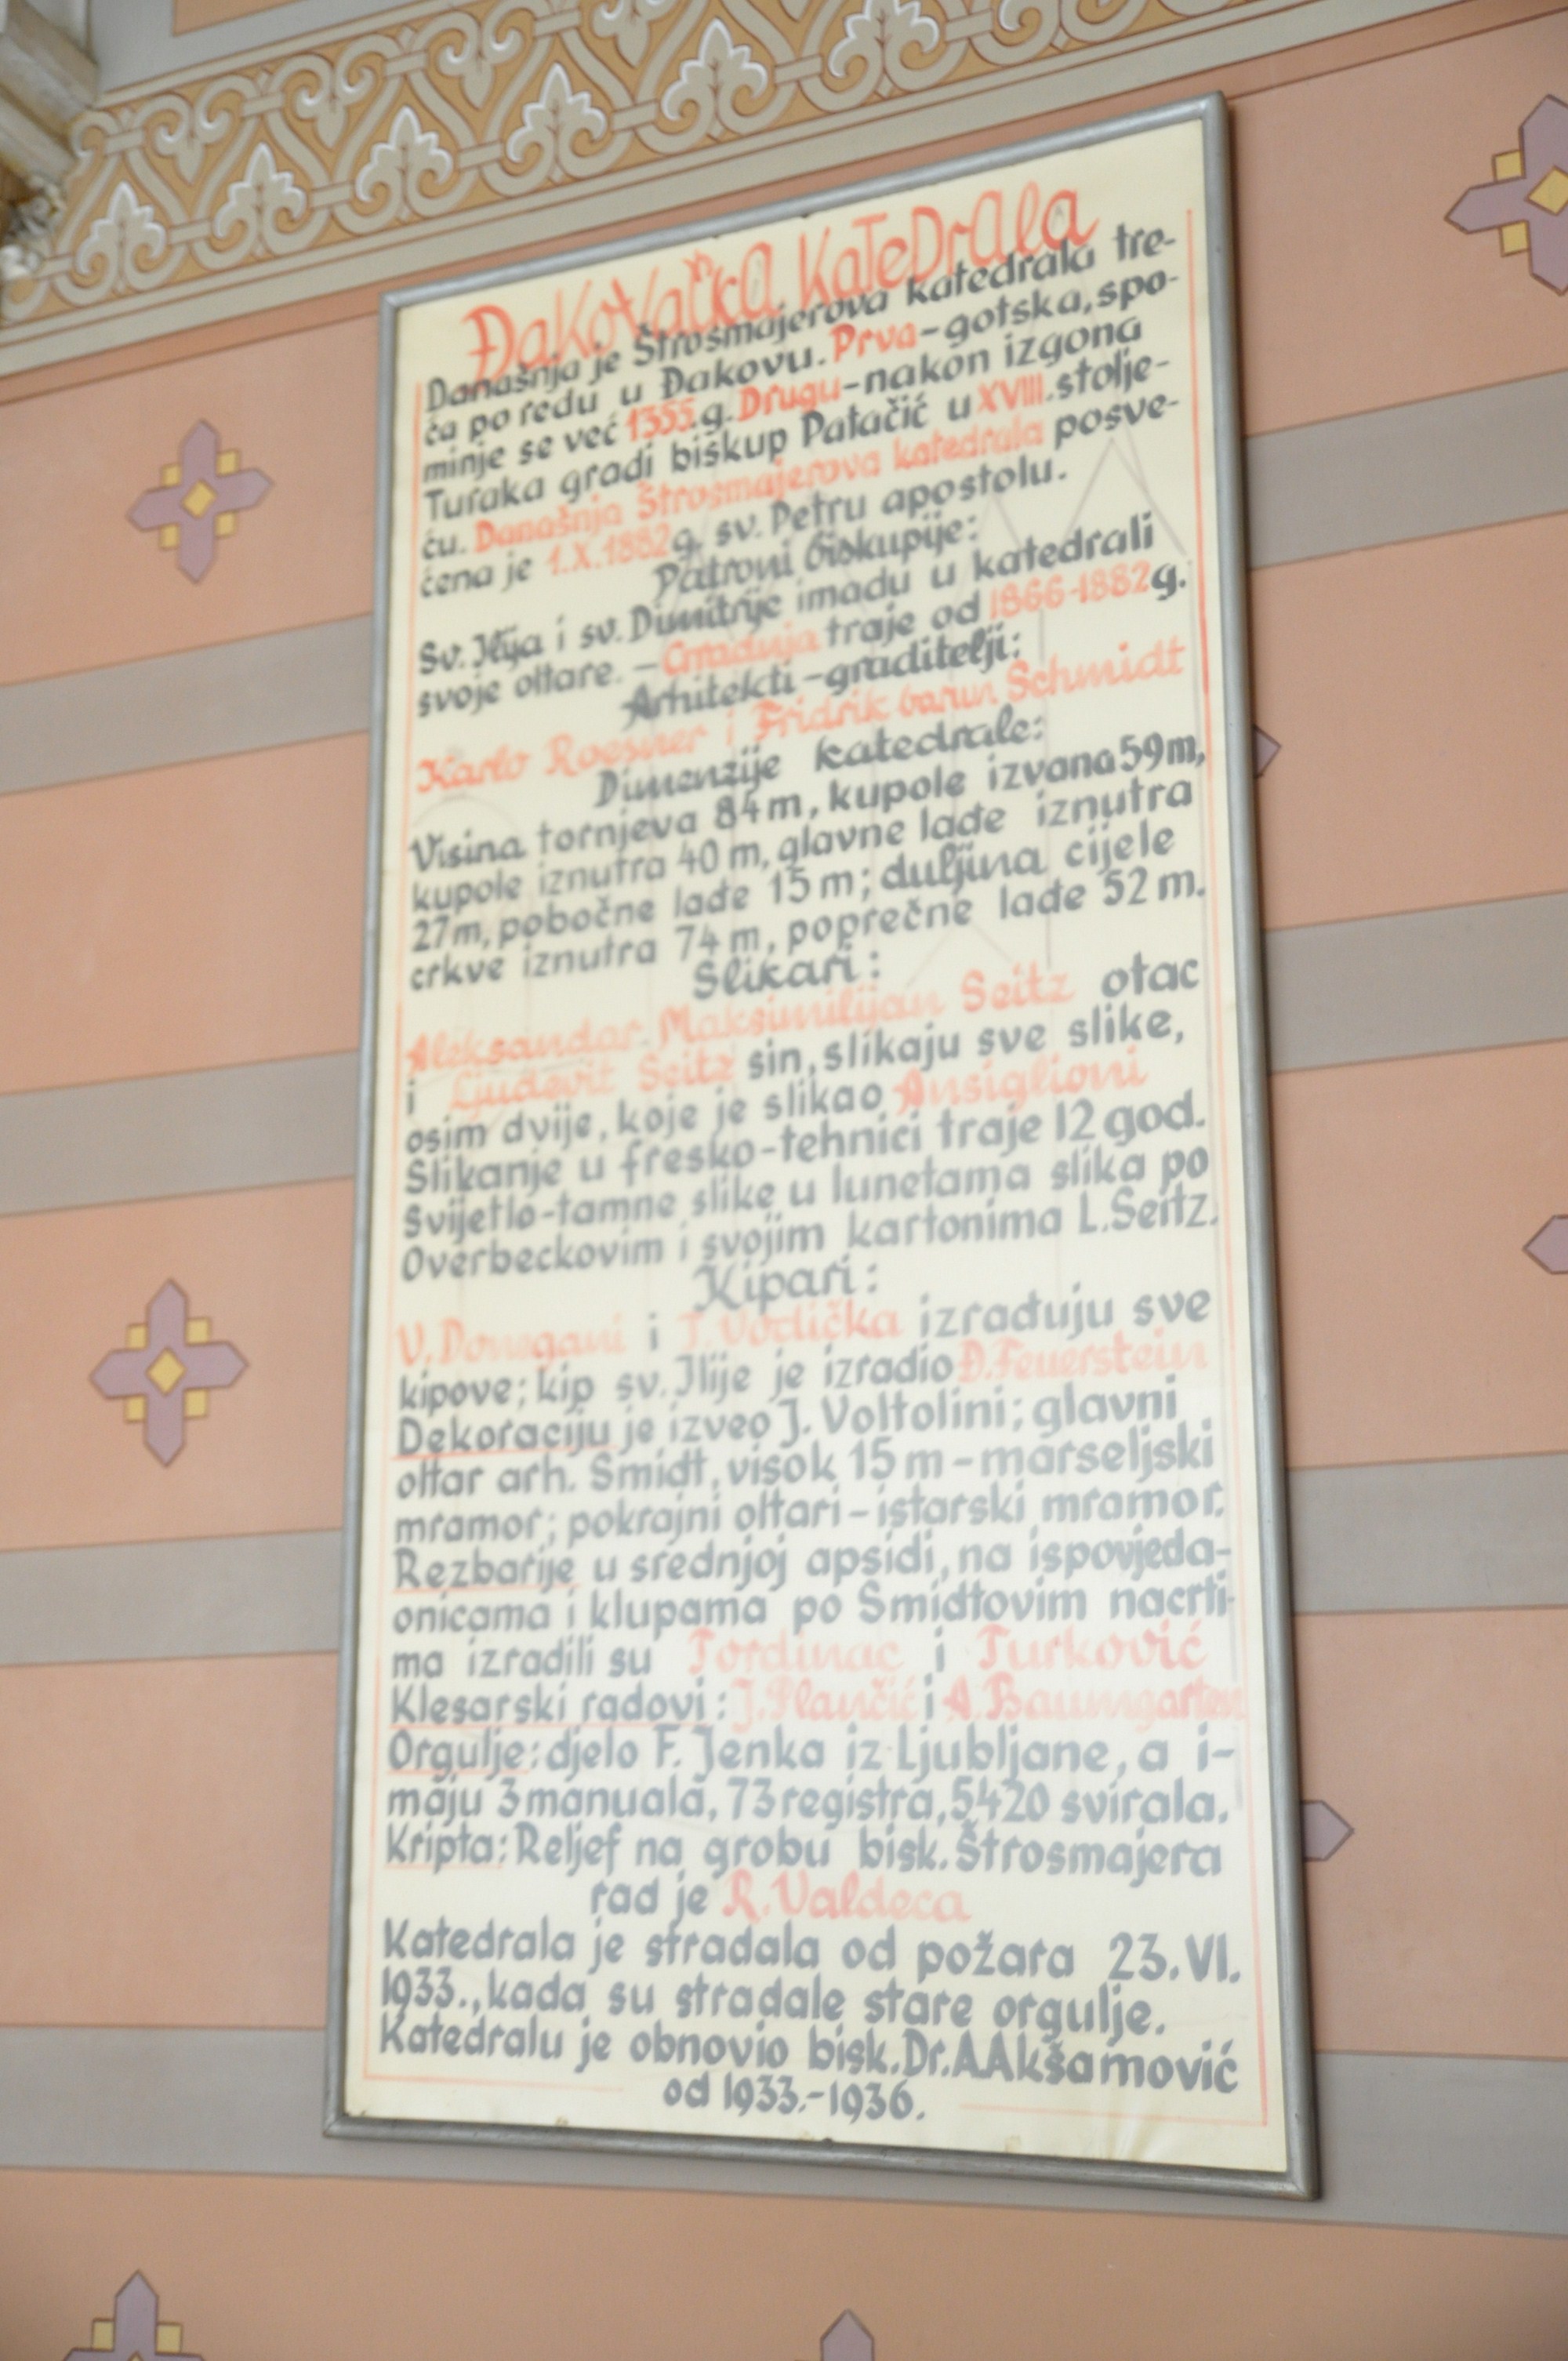 ĐaKoVačkA KaTeDrAla
Današnja je Štrosmajerova katedrala tre-
ća po redu u Đakovu. Prva-gotska, spo-
minje se već 1355.g. Drugu-nakon izgona
Turaka gradi biskup Patačić u XVIII. stolje-
ću. Današnja Štrosmajerova katedrala posve-
ćena je 1.X.1882 g. sv. Petru apostolu.
Patroni biskupije:
Sv. Ilija i sv. Dimitrije imadu u katedrali
svoje oltare. - Gradnja traje od 1866-1882 g.
Arhitekti-graditelji:
Karlo Roesner i Fridrik barun Schmidt
Dimenzije katedrale:
Visina tornjeva 84 m, kupole izvana 59 m,
kupole iznutra 40 m, glavne lađe iznutra
27 m, pobočne lađe 15 m; duljina cijele
crkve iznutra 74 m, poprečne lađe 52 m.
Slikari:
Aleksandar Maksimilijan Seitz otac
i Ljudevit Seitz sin, slikaju sve slike,
osim dvije, koje je slikao Ansiglioni
Slikanje u fresko-tehnici traje 12 god.
Svijetlo-tamne slike u lunetama slika po
Overbeckovim i svojim kartonima L. Seitz.
Kipari:
V. Donegani i T. Vodička izrađuju sve
kipove; kip sv. Ilije je izradio Đ. Feuerstein
Dekoraciju je izveo J. Voltolini; glavni
oltar arh. Šmidt, visok 15 m - marseljski
mramor; pokrajni oltari - istarski mramor.
Rezbarije u srednjoj apsidi, na ispovjeda-
onicama i klupama po Šmidtovim nacrti-
ma izradili su Tordinac i Turković
Klesarski radovi: J. Plančić i A. Baumgarten
Orgulje: djelo F. Jenka iz Ljubljane, a i-
maju 3 manuala, 73 registra, 5420 svirala.
Kripta: Reljef na grobu bisk. Štrosmajera
rad je R. Valdeca
Katedrala je stradala od požara 23. VI.
1933., kada su stradale stare orgulje.
Katedralu je obnovio bisk. Dr. A. Akšamović
od 1933.-1936.